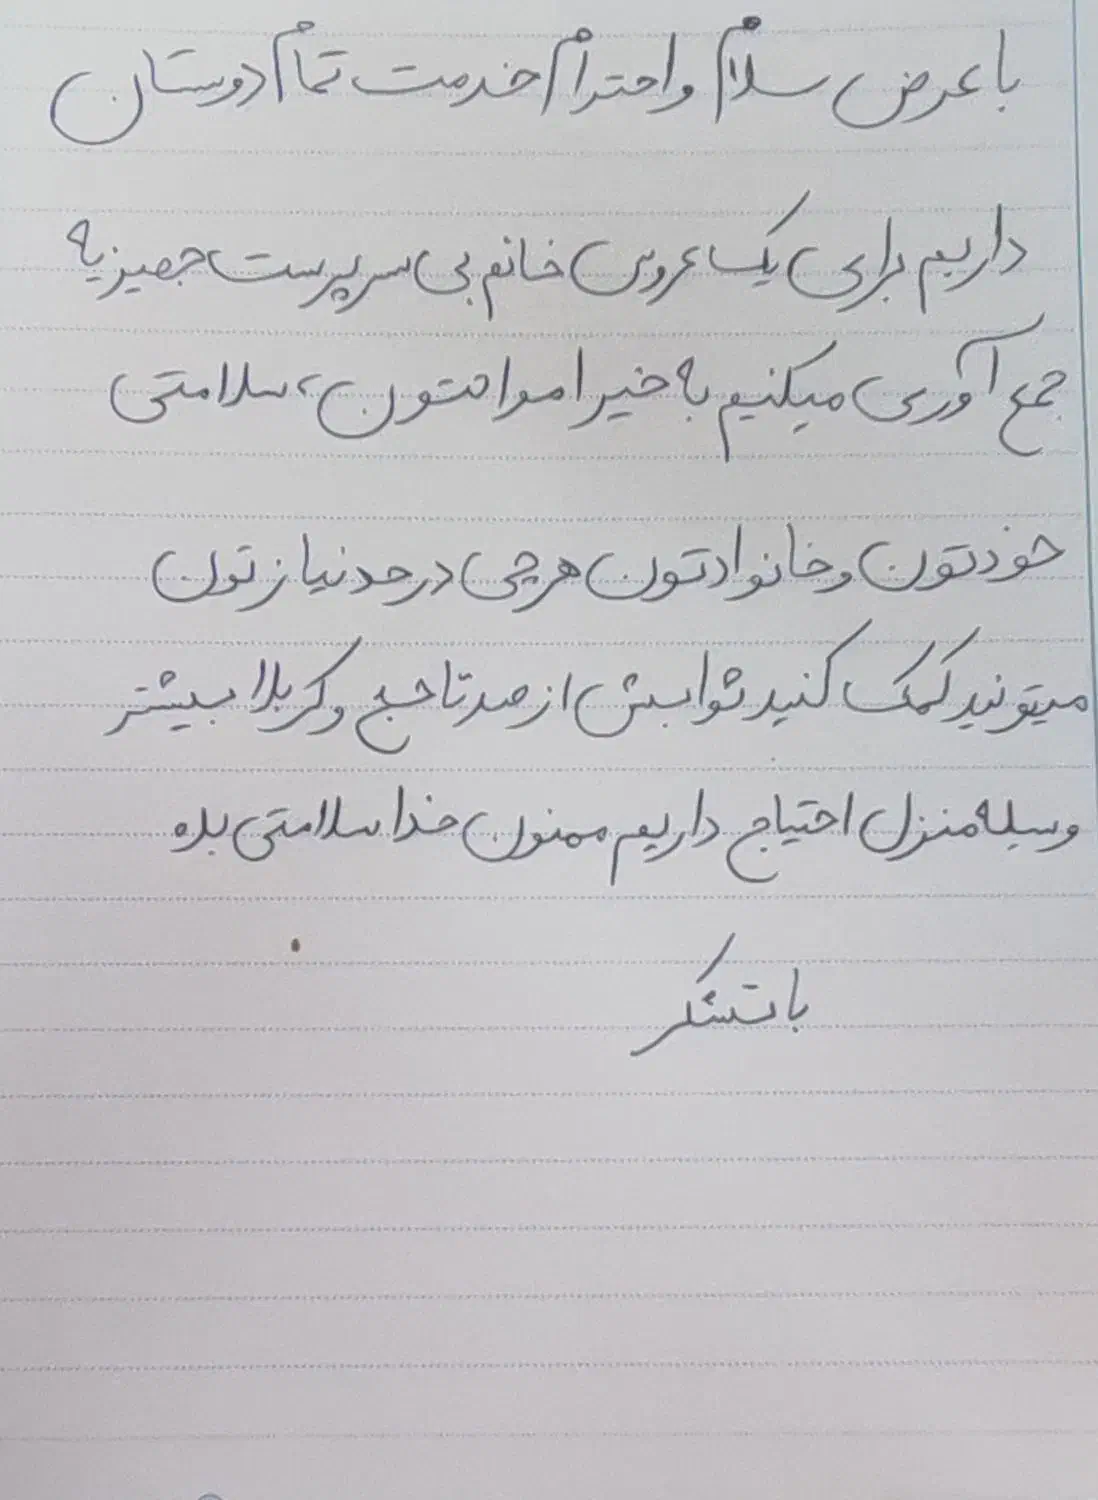 با عرض سلام و احترام خدمت تمام دوستان
داریم برای یک عروس خانم بی سرپرست جهیزیه
جمع آوری میکنیم به خیر امواتتون، سلامتی
خودتون و خانوادتون هرچی در حد نیازتون
میتونید کمک کنید ثوابش از صد تا حج و کربلا بیشتر
وسیله منزل احتیاج داریم ممنون خدا سلامتی بده
با تشکر